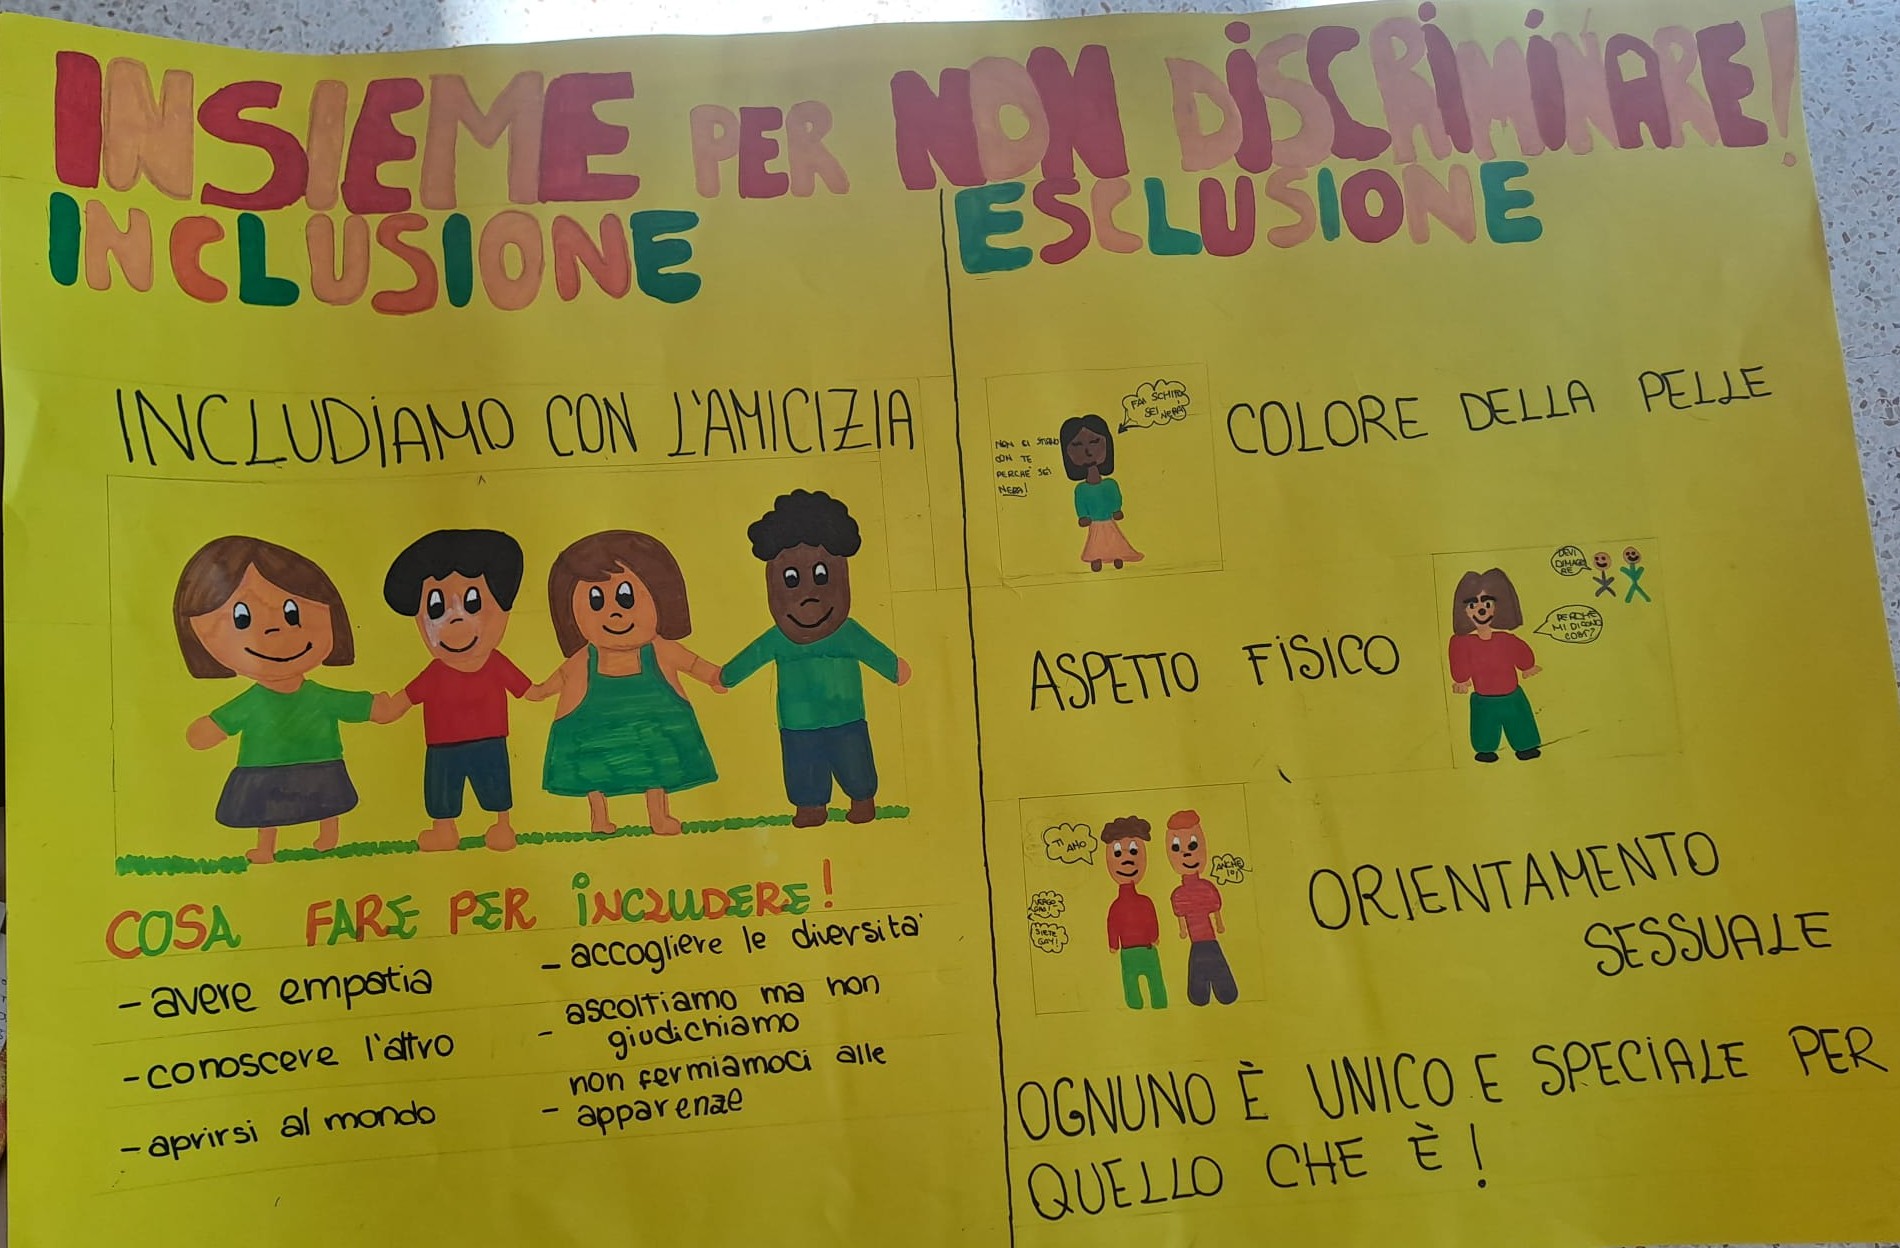 INSIEME PER NON DISCRIMINARE!
INCLUSIONE
INCLUDIAMO CON L'AMICIZIA
COSA FARE PER INCLUDERE!
- avere empatia
- conoscere l'altro
- aprirsi al mondo
- accogliere le diversita'
- ascoltiamo ma non
giudichiamo
non fermiamoci alle
- apparenze
ESCLUSIONE
FAI SCHIFO
SEI NERA
NON CI STIAMO
CON TE
PERCHÈ SEI
NERA!
COLORE DELLA PELLE
ASPETTO FISICO
DEVI
DIMAGRI
RE
PERCHÈ
MI DICONO
COSÌ?
TI
AMO
ANCHE
IO!
SIETE
GAY!
ORIENTAMENTO
SESSUALE
OGNUNO È UNICO E SPECIALE PER
QUELLO CHE È!